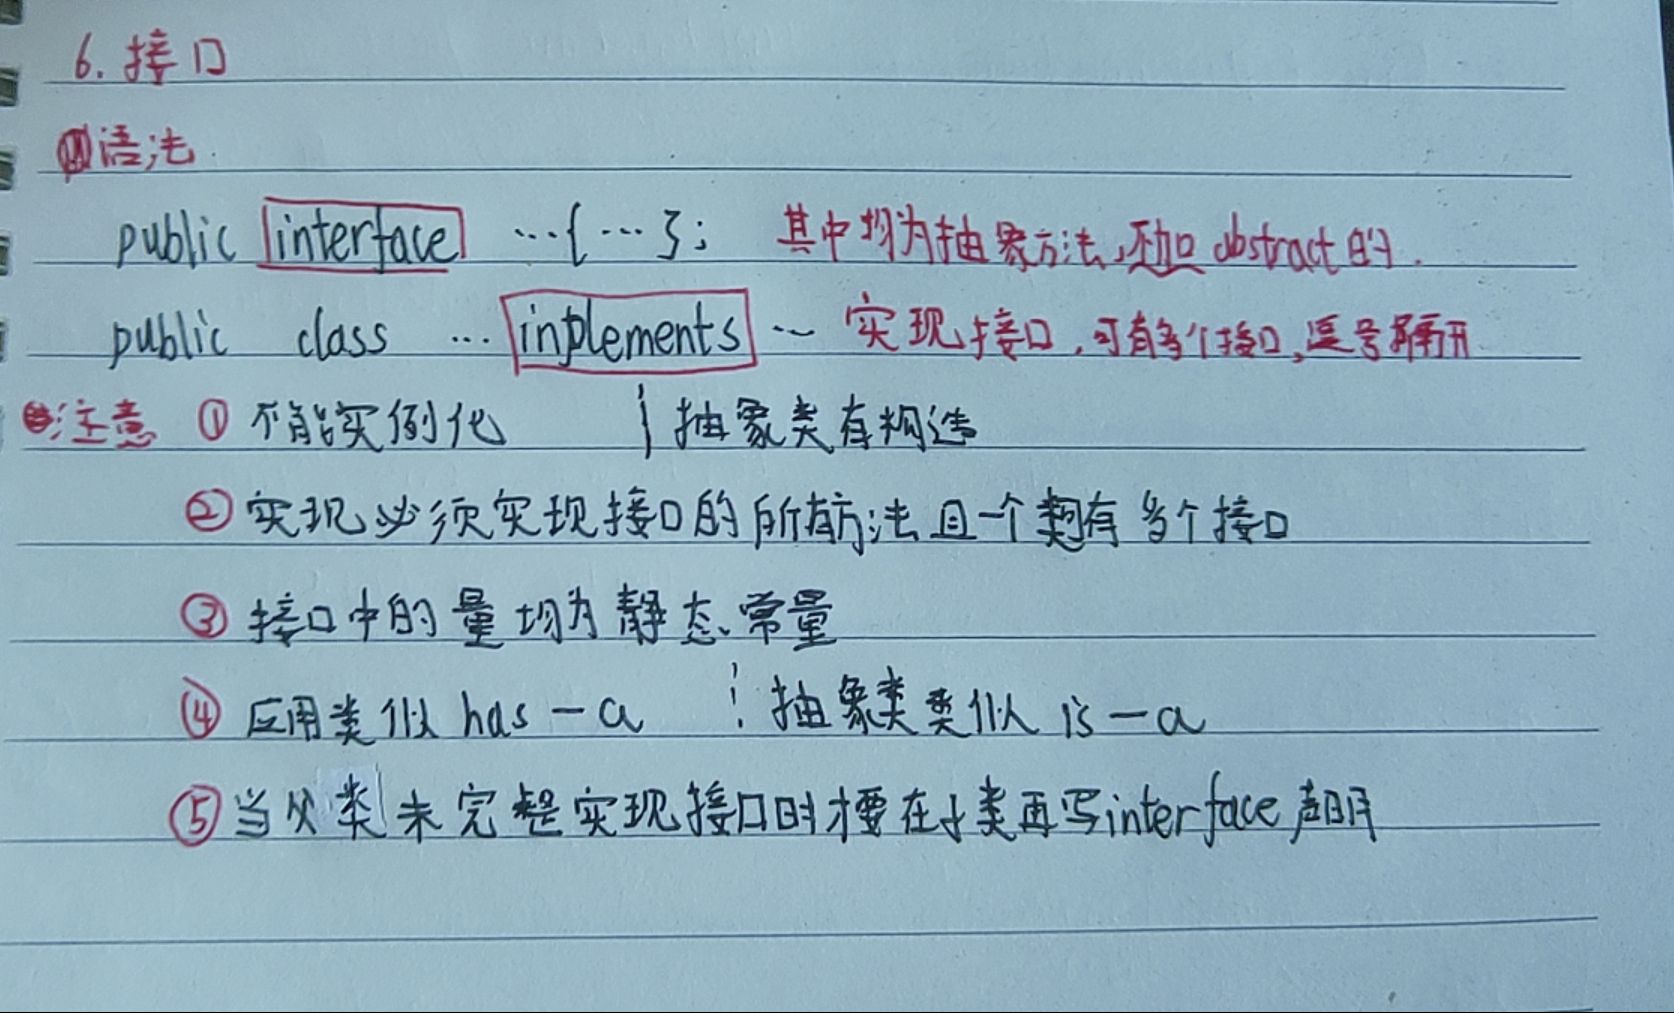 6. 接口
语法.
public interface …{ … }; 其中均为抽象方法,不加 abstract 的.
public class … inplements … 实现接口,可有多个接口,逗号隔开
注意 ① 不能实例化 抽象类有构造
② 实现必须实现接口的所有方法且一个类可有多个接口
③ 接口中的量均为静态常量
④ 应用类似 has-a 抽象类类似 is-a
⑤ 当父类未完整实现接口时才要在子类再写interface声明